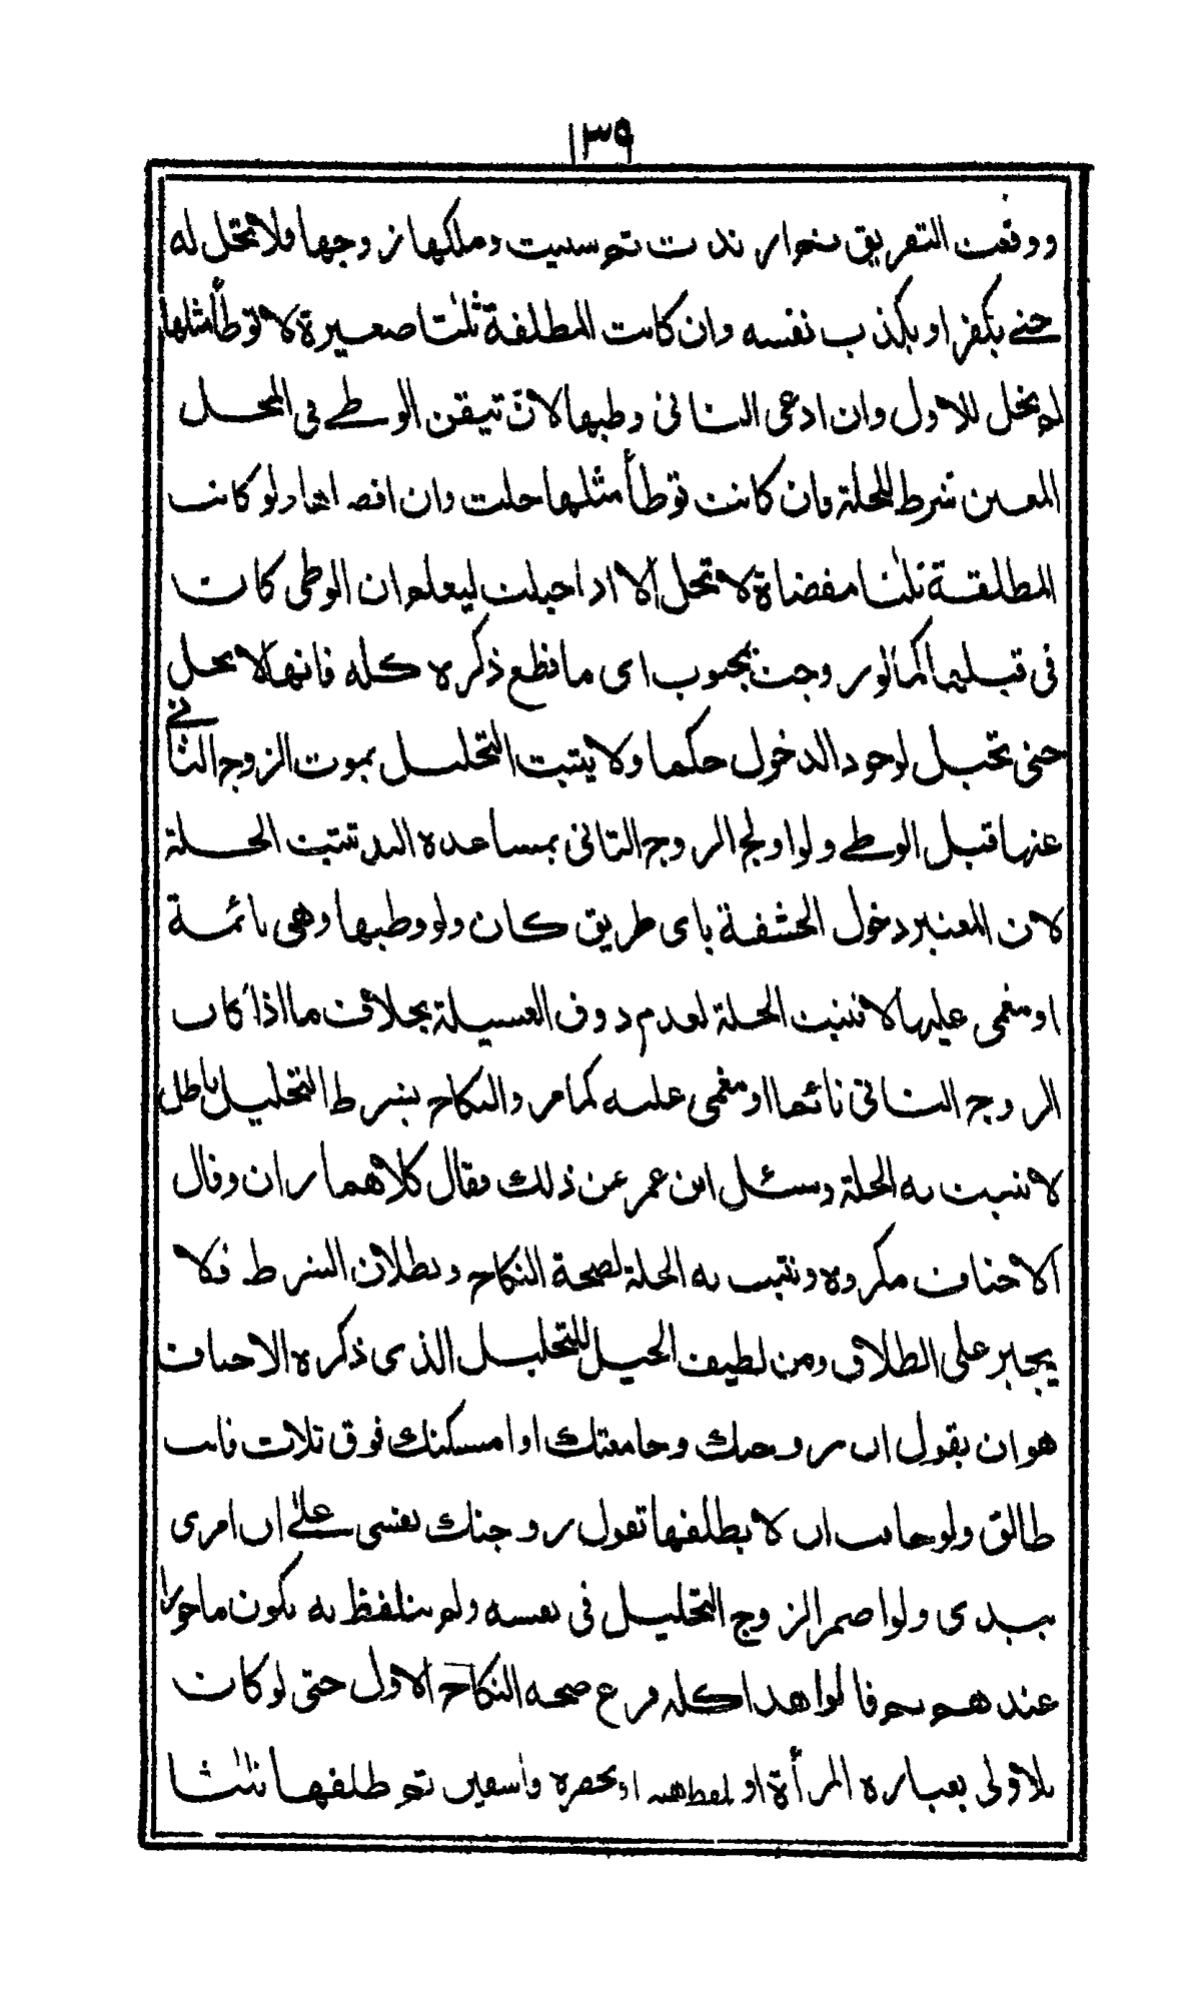 ١٣٩
ووقعت التفريق بنحو ارتدت ثم سبيت وملكها زوجها فلا تحل له
حتى يكفر او يكذب نفسه وان كانت المطلقة ثلثا صغيرة لا توطأ مثلها
لم يحل للاول وان ادعى الثاني وطيها لان تيقن الوطے في المحل
المعين شرط للحلة وان كانت توطأ مثلها حلت وان افضاها ولو كانت
المطلقة ثلثا مفضاة لا تحل الا اذا حبلت ليعلم ان الوطى كان
في قبلها كما لو زوجت بمجبوب اى ما قطع ذكره كله فانها لا تحل
حتى تحبل لوجود الدخول حكما ولا يثبت التحليل بموت الزوج الثاني
عنها قبل الوطے ولو اولج الزوج الثاني بمساعدة اليد تثبت الحلة
لان المعتبر دخول الحشفة باى طريق كان ولو وطيها وهى نائمة
او مغمى عليها لا تثبت الحلة لعدم ذوق العسيلة بخلاف ما اذا كان
الزوج الثاني نائما او مغمى عليه كما مر والنكاح بشرط التحليل باطل
لا تثبت به الحلة وسئل ابن عمر عن ذلك فقال كلاهما زان وقال
الاحناف مكروه وتثبت به الحلة لصحة النكاح وبطلان الشرط فلا
يجبر على الطلاق ومن لطيف الحيل للتحليل الذى ذكره الاحناف
هو ان يقول ان تزوجتك وجامعتك او امسكتك فوق ثلاث فانت
طالق ولو خافت ان لا يطلقها تقول زوجتك نفسى علے ان امرى
بيدى ولو اضمر الزوج التحليل في نفسه ولم يتلفظ به يكون ماجورا
عندهم ثم قالوا هذا كله فرع صحة النكاح الاول حتى لو كان
بلا ولى بعبارة المرأة او بلفظ هبة او بحضرة فاسقين ثم طلقها ثلثا